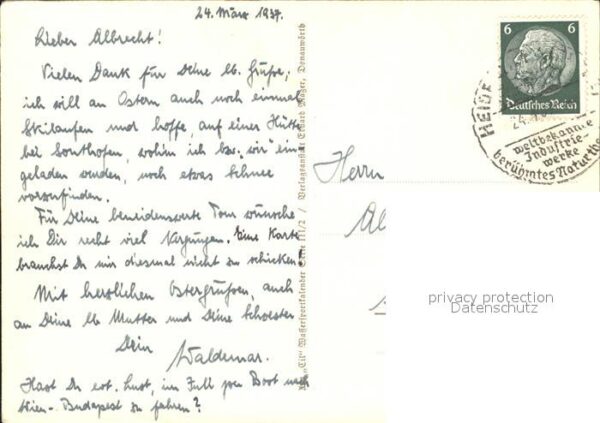 24. März 1937.
Lieber Albrecht!
Vielen Dank für Deine lb. Grüße,
ich will an Ostern auch noch einmal
Skilaufen und hoffe, auf einer Hütte
bei Sonthofen, wohin ich bzw. "wir" ein
geladen wurden, noch etwas Schnee
vorzufinden.
Für Deine beneidenswerte Tour wünsche
ich Dir recht viel Vergnügen. Eine Karte
brauchst Du mir diesmal nicht zu schicken!
Mit herzlichen Ostergrüßen, auch
an Deine lb Mutter und Deine Schwester
Dein
Waldemar.
Hast Du evt. Lust, im Juli per Boot nach
Wien-Budapest zu fahren?
"Eit" Wassersportkalender Serie III/2 / Verlagsanstalt Mager, Donauwörth
6 6
Deutsches Reich
HEIDE
24.
weltbekannte
Industrie-
werke
berühmtes Natur
Herrn
Al
privacy protection
Datenschutz